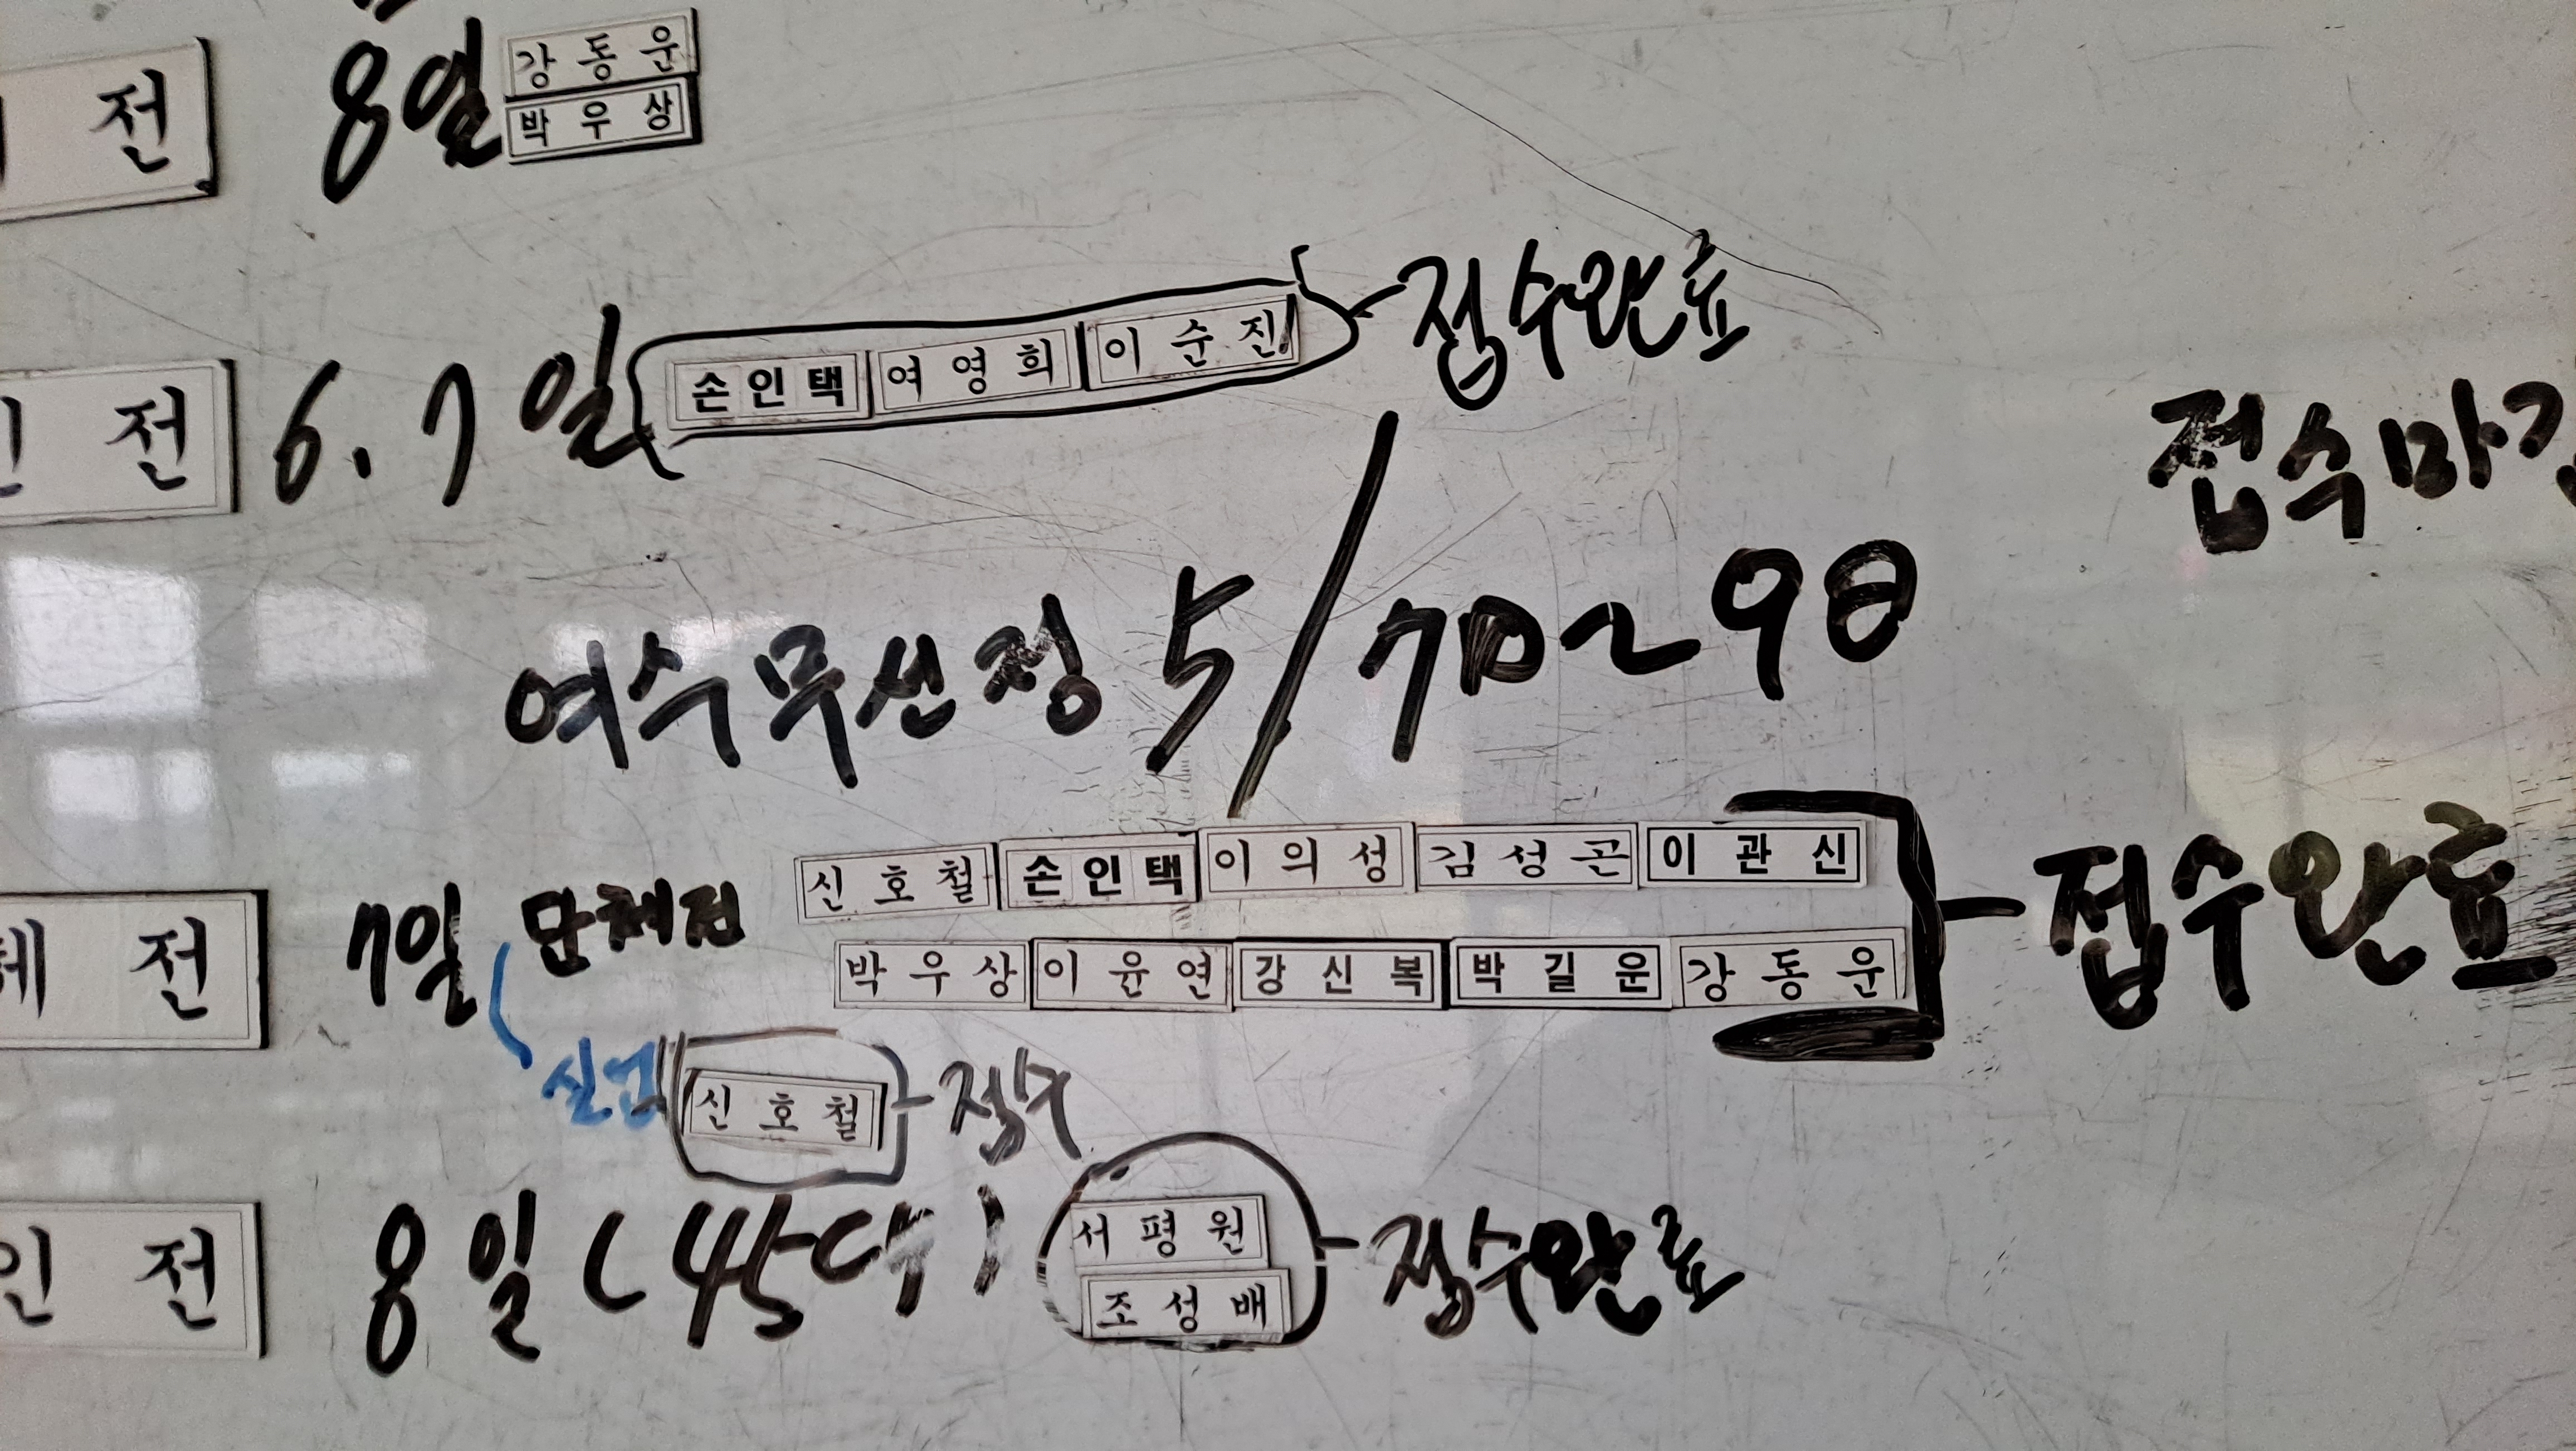 전 8일 강동운
박우상
인전 6.7일 손인택 여영희 이순진 접수완료
접수마감
여수무선정 5/7日~9日
신호철 손인택 이의성 김성곤 이관신
체전 7일 단체전 접수완료
박우상 이윤연 강신복 박길운 강동운
실업 신호철 접수
인전 8일 (45대) 서평원 접수완료
조성배